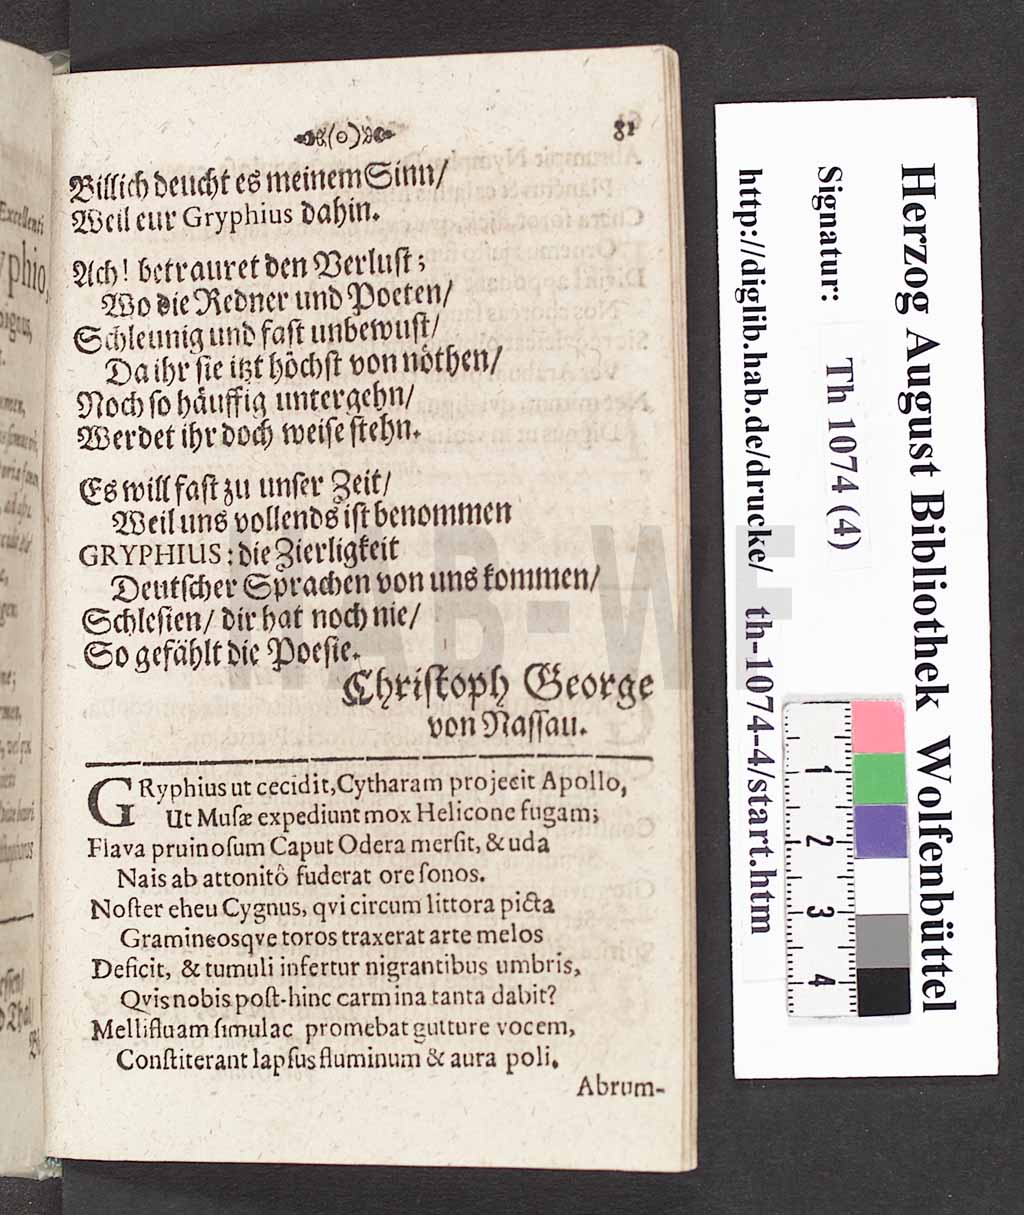 (o) 81
Billich deucht es meinem Sinn/
Weil eur Gryphius dahin.
Ach! betrauret den Verlust;
Wo die Redner und Poeten/
Schleunig und fast unbewust/
Da ihr sie itzt höchst von nöthen/
Noch so häuffig untergehn/
Werdet ihr doch weise stehn.
Es will fast zu unser Zeit/
Weil uns vollends ist benommen
GRYPHIUS: die Zierligkeit
Deutscher Sprachen von uns kommen/
Schlesien/ dir hat noch nie/
So gefählt die Poesie.
Christoph George
von Nassau.
GRyphius ut cecidit, Cytharam projecit Apollo,
Ut Musæ expediunt mox Helicone fugam;
Flava pruinosum Caput Odera mersit, & uda
Nais ab attonitô fuderat ore sonos.
Noster eheu Cygnus, qvi circum littora picta
Gramineosqve toros traxerat arte melos
Deficit, & tumuli infertur nigrantibus umbris,
Qvis nobis post-hinc carmina tanta dabit?
Mellifluam simulac promebat gutture vocem,
Constiterant lapsus fluminum & aura poli.
Abrum-
HAB-WF
Herzog August Bibliothek Wolfenbüttel
Signatur: Th 1074 (4)
http://diglib.hab.de/drucke/ th-1074-4/start.htm
1
2
3
4